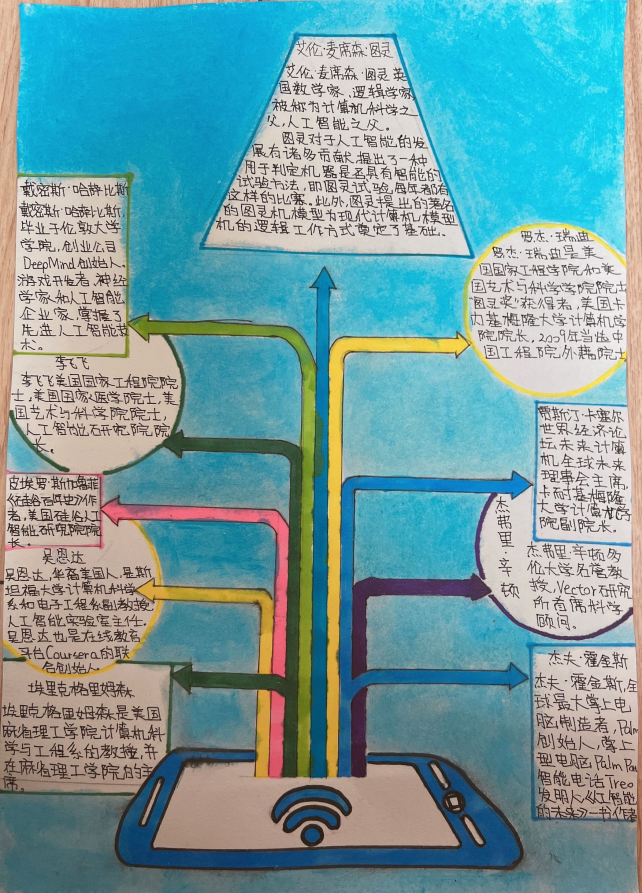 艾伦·麦席森·图灵
艾伦·麦席森·图灵英
国数学家、逻辑学家
被称为计算机科学之
父,人工智能之父。
图灵对于人工智能的发
展有诸多贡献,提出了一种
用于判定机器是否具有智能的
试验方法,即图灵试验,每年都有
这样的比赛。此外,图灵提出的著名
的图灵机模型为现代计算机模型
机的逻辑工作方式奠定了基础。
戴密斯·哈萨比斯
戴密斯·哈萨比斯,
毕业于伦敦大学
学院,创业公司
DeepMind创始人、
游戏开发者,神经
学家和人工智能
企业家,掌握了
先进人工智能技
术。
李飞飞
李飞飞美国国家工程院院
士,美国国家医学院院士,美
国艺术与科学院院士,
人工智能研究院院
长。
皮埃罗·斯加鲁菲
《硅谷百年史》作
者,美国硅谷人工
智能研究院院
长。
吴恩达
吴恩达,华裔美国人,是斯
坦福大学计算机科学
系和电子工程系副教授
人工智能实验室主任。
吴恩达也是在线教育
平台Coursera的联
合创始人
埃里克格里姆森
埃里克格里姆森是美国
麻省理工学院计算机科
学与工程系的教授,并
在麻省理工学院自的主
席。
罗杰·瑞迪
罗杰·瑞迪是美
国国家工程学院院和美
国艺术与科学学院院士
"图灵奖"获得者,美国卡
内基梅隆大学计算机学
院院长,2009年当选中
国工程院外籍院士
贾斯汀·卡塞尔
世界经济论
坛未来计算
机全球未来
理事会主席,
卡耐基梅隆
大学计算机学
院副院长。
杰弗里·辛顿
杰弗里·辛顿多
伦大学名誉教
授,Vector研究
所首席科学
顾问。
杰夫·霍金斯
杰夫·霍金斯,全
球最大掌上电
脑制造者,Palm
创始人,掌上
型电脑Palm,Pa
智能电话Treo
发明人《人工智能
的未来》一书作者